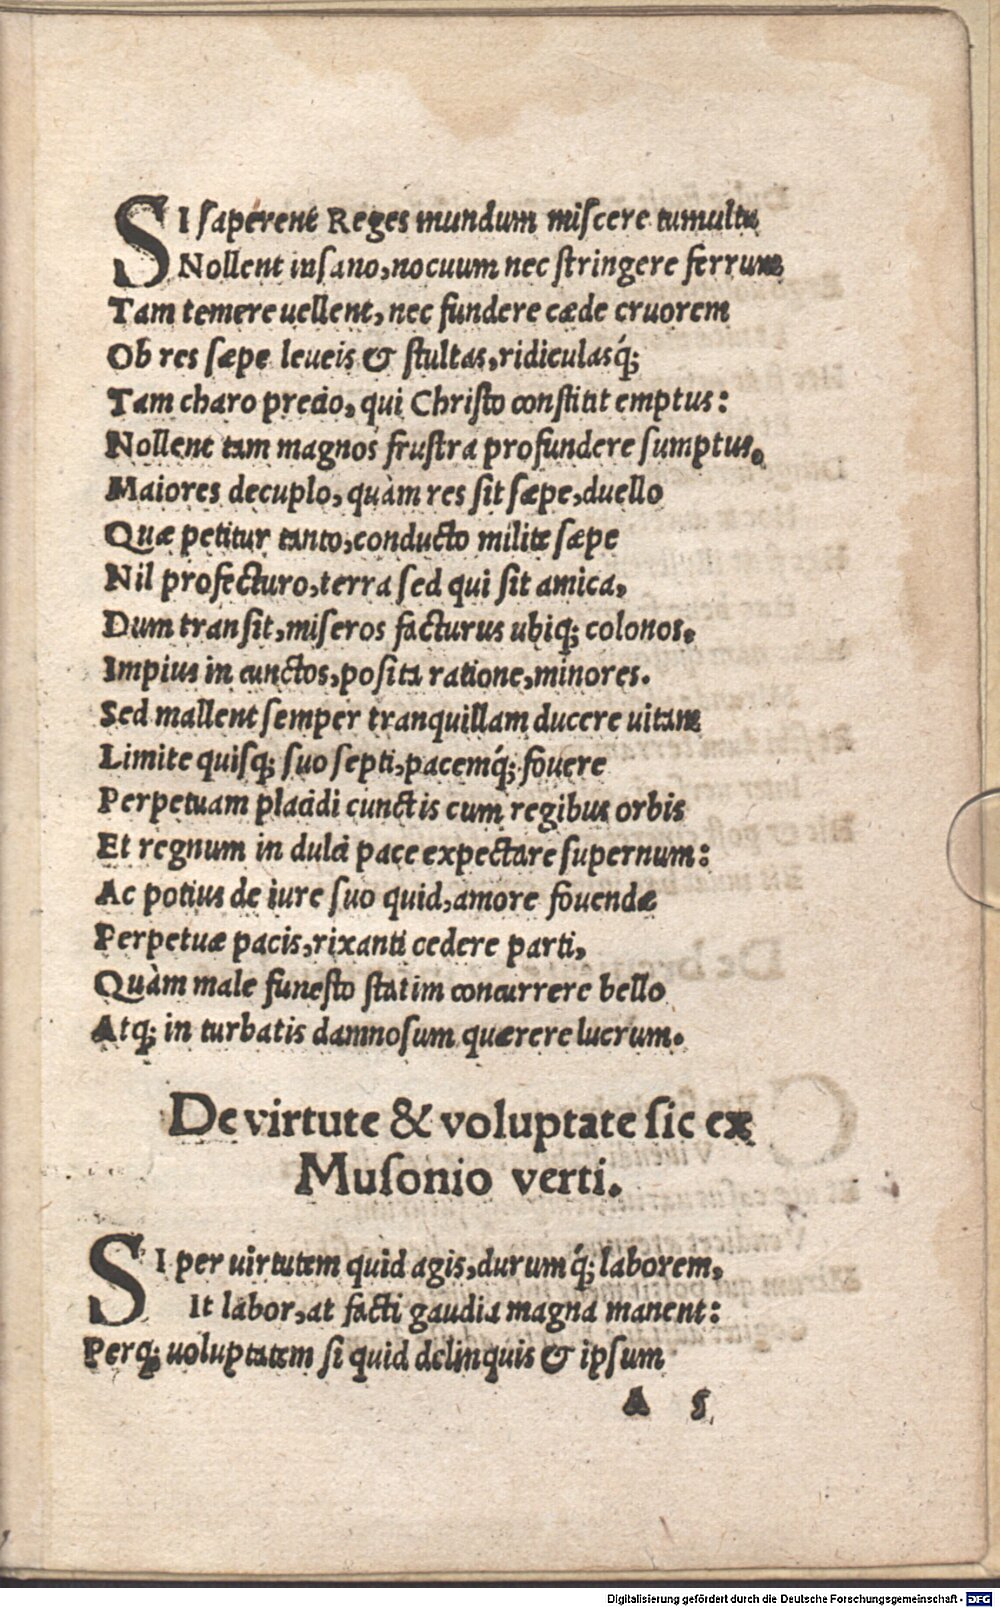 SI ſaperent Reges mundum miſcere tumultu
Nollent inſano, nocuum nec ſtringere ferrum
Tam temere uellent, nec fundere cæde cruorem
Ob res ſæpe leueis & ſtultas, ridiculasq́;
Tam charo precio, qui Chriſto conſtitit emptus:
Nollent tam magnos fruſtra profundere ſumptus.
Maiores decuplo, quàm res ſit ſæpe, duello
Quæ petitur tanto, conducto milite ſæpe
Nil profecturo, terra ſed qui ſit amica,
Dum tranſit, miſeros facturus ubiq; colonos.
Impius in cunctos, poſita ratione, minores.
Sed mallent ſemper tranquillam ducere uitam
Limite quiſq; ſuo ſepti, pacemq́; fouere
Perpetuam placidi cunctis cum regibus orbis
Et regnum in dulci pace expectare ſupernum:
Ac potius de iure ſuo quid, amore fouendæ
Perpetuæ pacis, rixanti cedere parti,
Quàm male funeſto ſtatim concurrere bello
Atq; in turbatis damnoſum quærere lucrum.
De virtute & voluptate ſic ex
Muſonio verti.
SI per uirtutem quid agis, durumq́; laborem,
It labor, at facti gaudia magna manent:
Perq; uoluptatem ſi quid delinquis & ipſum
A 5
Digitalisierung gefördert durch die Deutsche Forschungsgemeinschaft - DFG